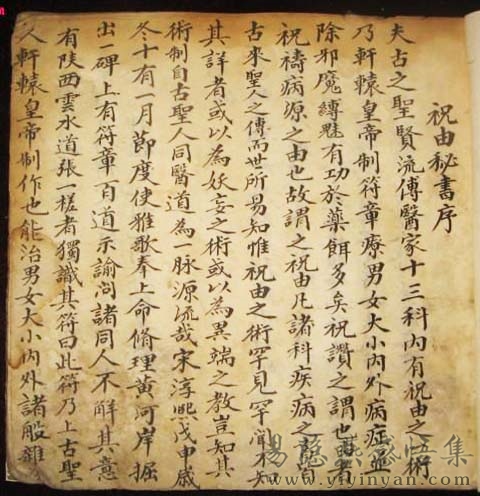 祝由秘書序
夫古之聖賢流傳醫家十三科內有祝由之術
乃軒轅皇帝制符章療男女大小內外病症並
除邪魔縛魅有功於藥餌多矣祝讚之謂也由者
祝禱病源之由也故謂之祝由凡諸科疾病之
古來聖人之傳而世所易知惟祝由之術罕見罕聞不知
其詳者或以為妖妄之術或以為異端之教豈知其
術制自古聖人同醫道為一脉源流哉宋淳熙戊申歲
冬十有一月節度使雅歌奉上命脩理黃河岸掘
出一碑上有符章百道示諭问諸同人不解其意
有陝西雲水道張一槎者獨識其符曰此符乃上古聖
人軒轅皇帝制作也能治男女大小內外諸般雜
www.yiyinyan.com